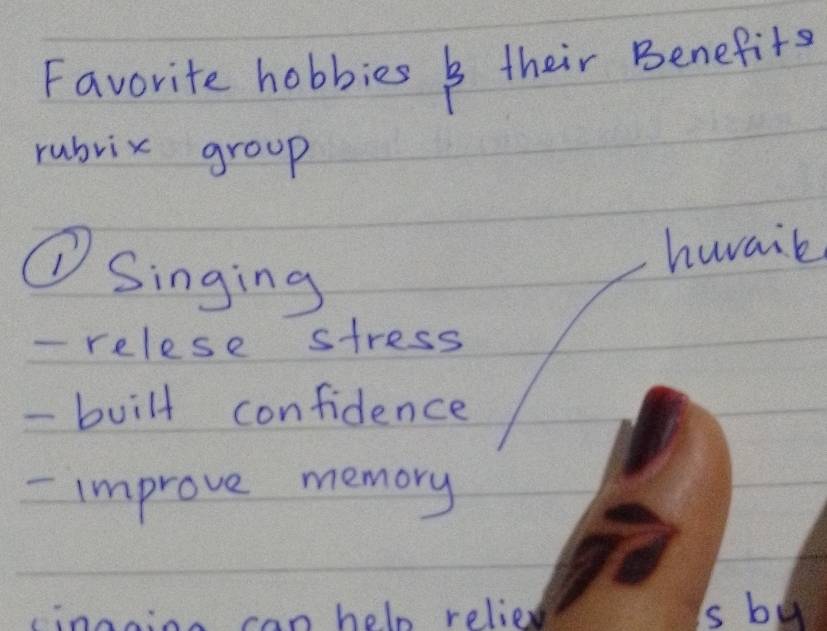 Favorite hobbies & their Benefits
rubrix group
① Singing
huraik
- relese stress
- built confidence
- improve memory
singging can help reliev s by